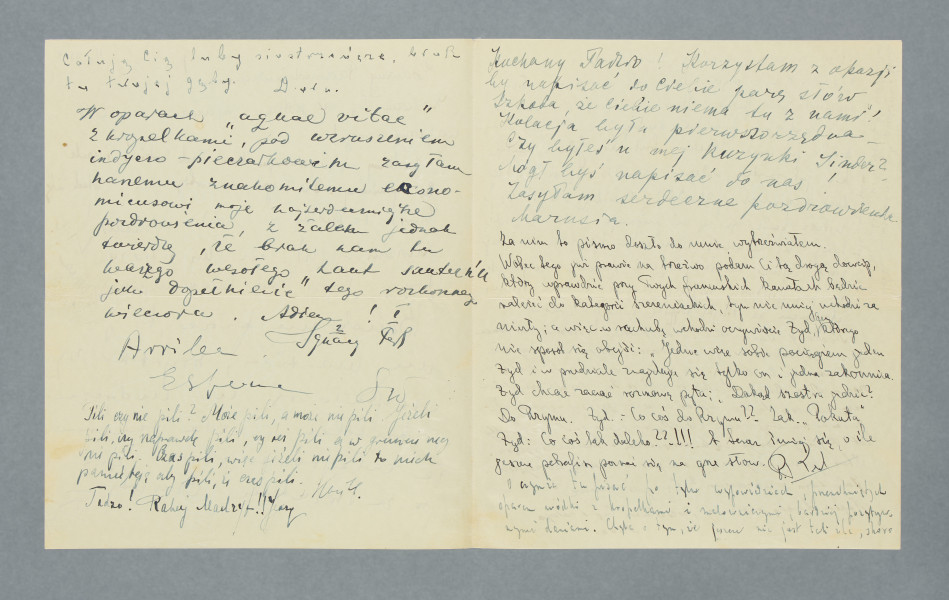 Całuję Cię
tu Twojej gęby.
W oparach "aquae vitae"
z kropelkami, pod wrażeniem
indyczo-pieczarkowym zasyłam
kanemu znakomitemu ekono-
micusowi moje najserdeczniejsze
pozdrowienia, z żalem jednak
twierdzę, że brak nam tu
waszego wesołego
jako "dopełnienie" tego rozkosznego
wieczoru. Adieu!!
Ignacy
Pili czy nie pili? Może pili, a może nie pili. Jeżeli
pili, czy naprawdę pili, czy coś pili a w gruncie rzeczy
nie pili. Czas pili, więc jeżeli nie pili to niech
pamiętają aby pili, bo czas pili.
Tadzo! Kochaj Madryt!!
Kochany Tadziu! Korzystam z okazji
by napisać do Ciebie parę słów
Szkoda, że Ciebie niema tu z nami!
Kolacja była pierwszorzędna
Czy byłeś u mej kuzynki Sinder?
Mógłbyś napisać do nas!
Zasyłam serdeczne pozdrowienia
Marusia.
Zanim to pismo doszło do mnie wytrzeźwiałem.
Wobec tego już prawie na trzeźwo podam Ci tą drogą dowcip,
który wprawdzie przy Twych francuskich kawałach będzie
należeć do kategorii szczeniackich, tym nie mniej uchodzi za
niezły; a więc w rachubę wchodzi oczywiście Żyd, bez którego
nie sposób się obejść: "Jedzie więc sobie pociągiem jeden
Żyd i w przedziale znajduje się tylko on i jedna zakonnica.
Żyd chcąc zacząć rozmowę pyta: "Dokąd siostra jedzie?
Do Rzymu. Żyd. - Co coś do Rzymu?? Tak. "Pokuta"
Żyd: Co coś tak daleko??!!! A teraz śmiej się, o ile
jeszcze potrafisz poznać się na grze słów.
O czym tu pisać po tylu wypowiedziach, przesiąkniętych
oparem wódki z kropelkami i
daniami. Chyba o tym, że jeszcze nie jest tak źle, skoro